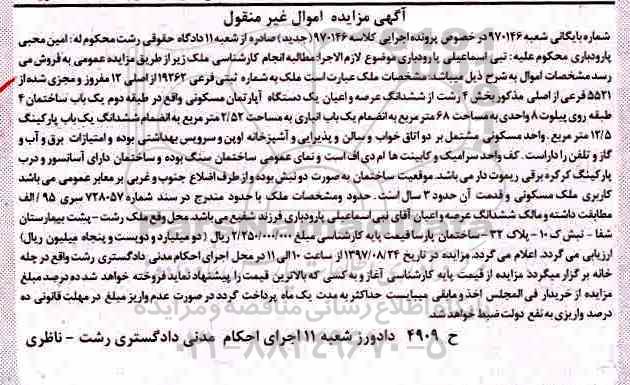 آگهی مزایده اموال غیر منقول
شماره بایگانی شعبه ۹۷۰۱۴۶ در خصوص پرونده اجرایی کلاسه ۹۷۰۱۴۶ (جدید) صادره از شعبه ۱۱ دادگاه حقوقی رشت محکوم له: امین محبی
پارودباری محکوم علیه: تبی اسماعیلی پارودباری موضوع لازم الاجرا: مطالبه انجام کارشناسی ملک زیر از طریق مزایده عمومی به فروش می
رسد مشخصات اموال به شرح ذیل میباشد مشخصات ملک عبارت است ملک به شماره ثبتی فرعی ۱۹۲۶۲ از اصلی ۱۲ مفروز و مجزی شده از
۵۵۲۱ فرعی از اصلی مذکور بخش ۴ رشت از ششدانگ عرصه و اعیان یک دستگاه آپارتمان مسکونی واقع در طبقه دوم یک باب ساختمان ۴
طبقه روی پیلوت ۸ واحدی به مساحت ۶۸ متر مربع به انضمام یک باب انباری به مساحت ۲/۵۲ متر مربع به انضمام ششدانگ یک باب پارکینگ
۱۲/۵ متر مربع . واحد مسکونی مشتمل بر دو اتاق خواب و سالن و پذیرایی و آشپزخانه اوپن و سرویس بهداشتی بوده و امتیازات برق و آب و
گاز و تلفن را داراست . کف واحد سرامیک و کابینت ها ام دی اف است و نمای عمومی ساختمان سنگ بوده و ساختمان دارای آسانسور و درب
پارکینگ کرکره برقی ریموت دار می باشد. موقعیت ساختمان به صورت دو نبش بوده و از طرف اضلاع جنوب و غربی بر معابر عمومی می باشد
کاربری ملک مسکونی و قدمت آن حدود ۳ سال است . حدود ومشخصات ملک با حدود مندرج در سند شماره ۷۲۸۰۵۷ سری ۹۵ / الف
مطابقت داشته و مالک ششدانگ عرصه و اعیان آقای نبی اسماعیلی پارودباری فرزند شفیع می باشد. محل وقع ملک رشت - پشت بیمارستان
شفا - نبش ک ۱۰ - پلاک ۳۲ - ساختمان پارسا قیمت پایه کارشناسی مبلغ ۲/۲۵۰/۰۰۰/۰۰۰ ریال (دو میلیارد و دویست و پنجاه میلیون ریال)
ارزیابی می گردد. اعلام می گردد. مزایده در تاریخ ۱۳۹۷/۰۸/۲۴ از ساعت ۱۰ الی ۱۱ در محل اجرای احکام مدنی دادگستری رشت واقع در چله
خانه بر گزار میگردد مزایده از قیمت پایه کارشناسی آغاز و به کسی که بالاترین قیمت را پیشنهاد نماید فروخته خواهد شد ده درصد مبلغ
مزایده از خریدار فی المجلس اخذ و مابقی میبایست حداکثر به مدت یک ماه پرداخت گردد در صورت عدم واریز مبلغ در مهلت قانونی ده
درصد واریزی به نفع دولت ضبط خواهد شد.
ح ۴۹۰۹ دادورز شعبه ۱۱ اجرای احکام مدنی دادگستری رشت - ناظری
۰۲۱-۸۸۳۴۹۶۷۰-۵